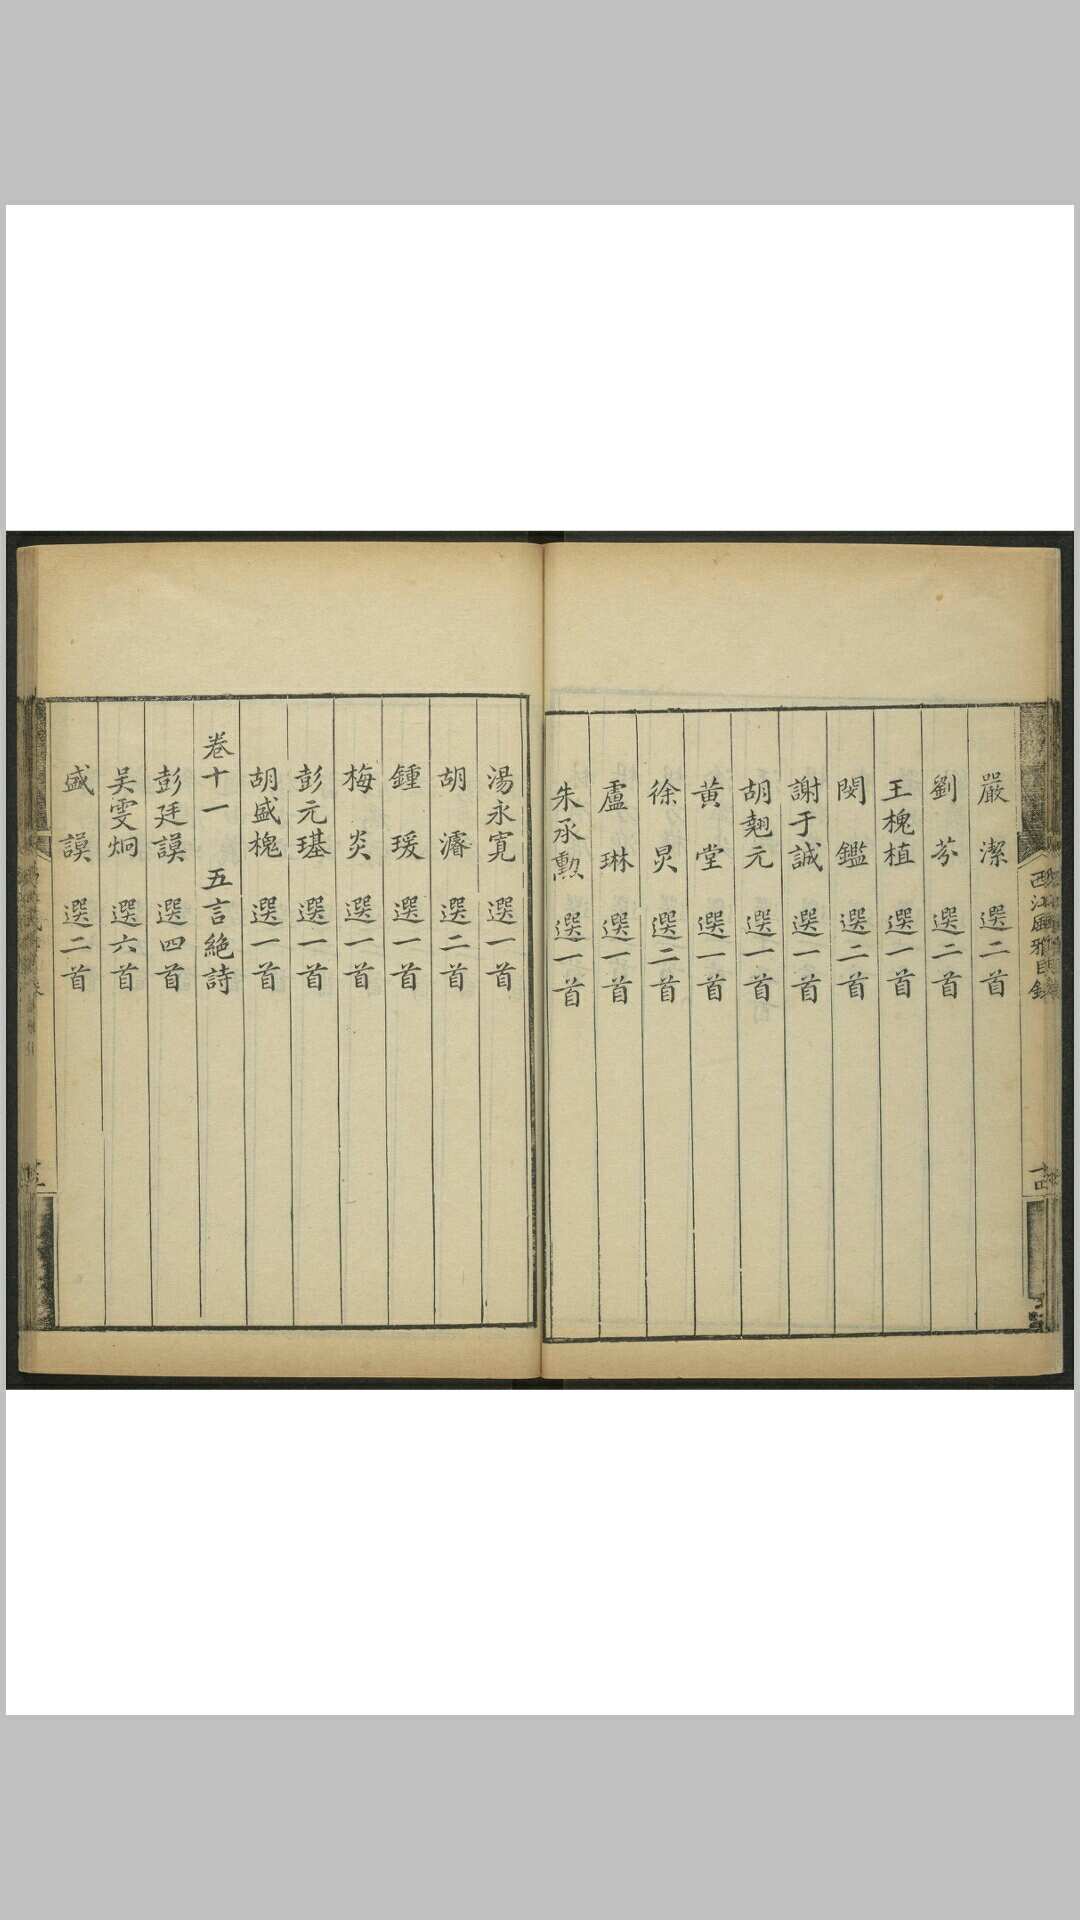 西江風雅目錄
嚴潔 選二首
劉芬 選二首
王槐植 選一首
閔鑑 選二首
謝于誠 選一首
胡翹元 選一首
黃堂 選一首
徐炅 選二首
盧琳 選一首
朱承勲 選一首
湯永寬 選一首
胡濬 選二首
鍾瑗 選一首
梅炎 選一首
彭元璂 選一首
胡盛槐 選一首
卷十一 五言絶詩
彭廷謨 選四首
吴雯炯 選六首
盛謨 選二首